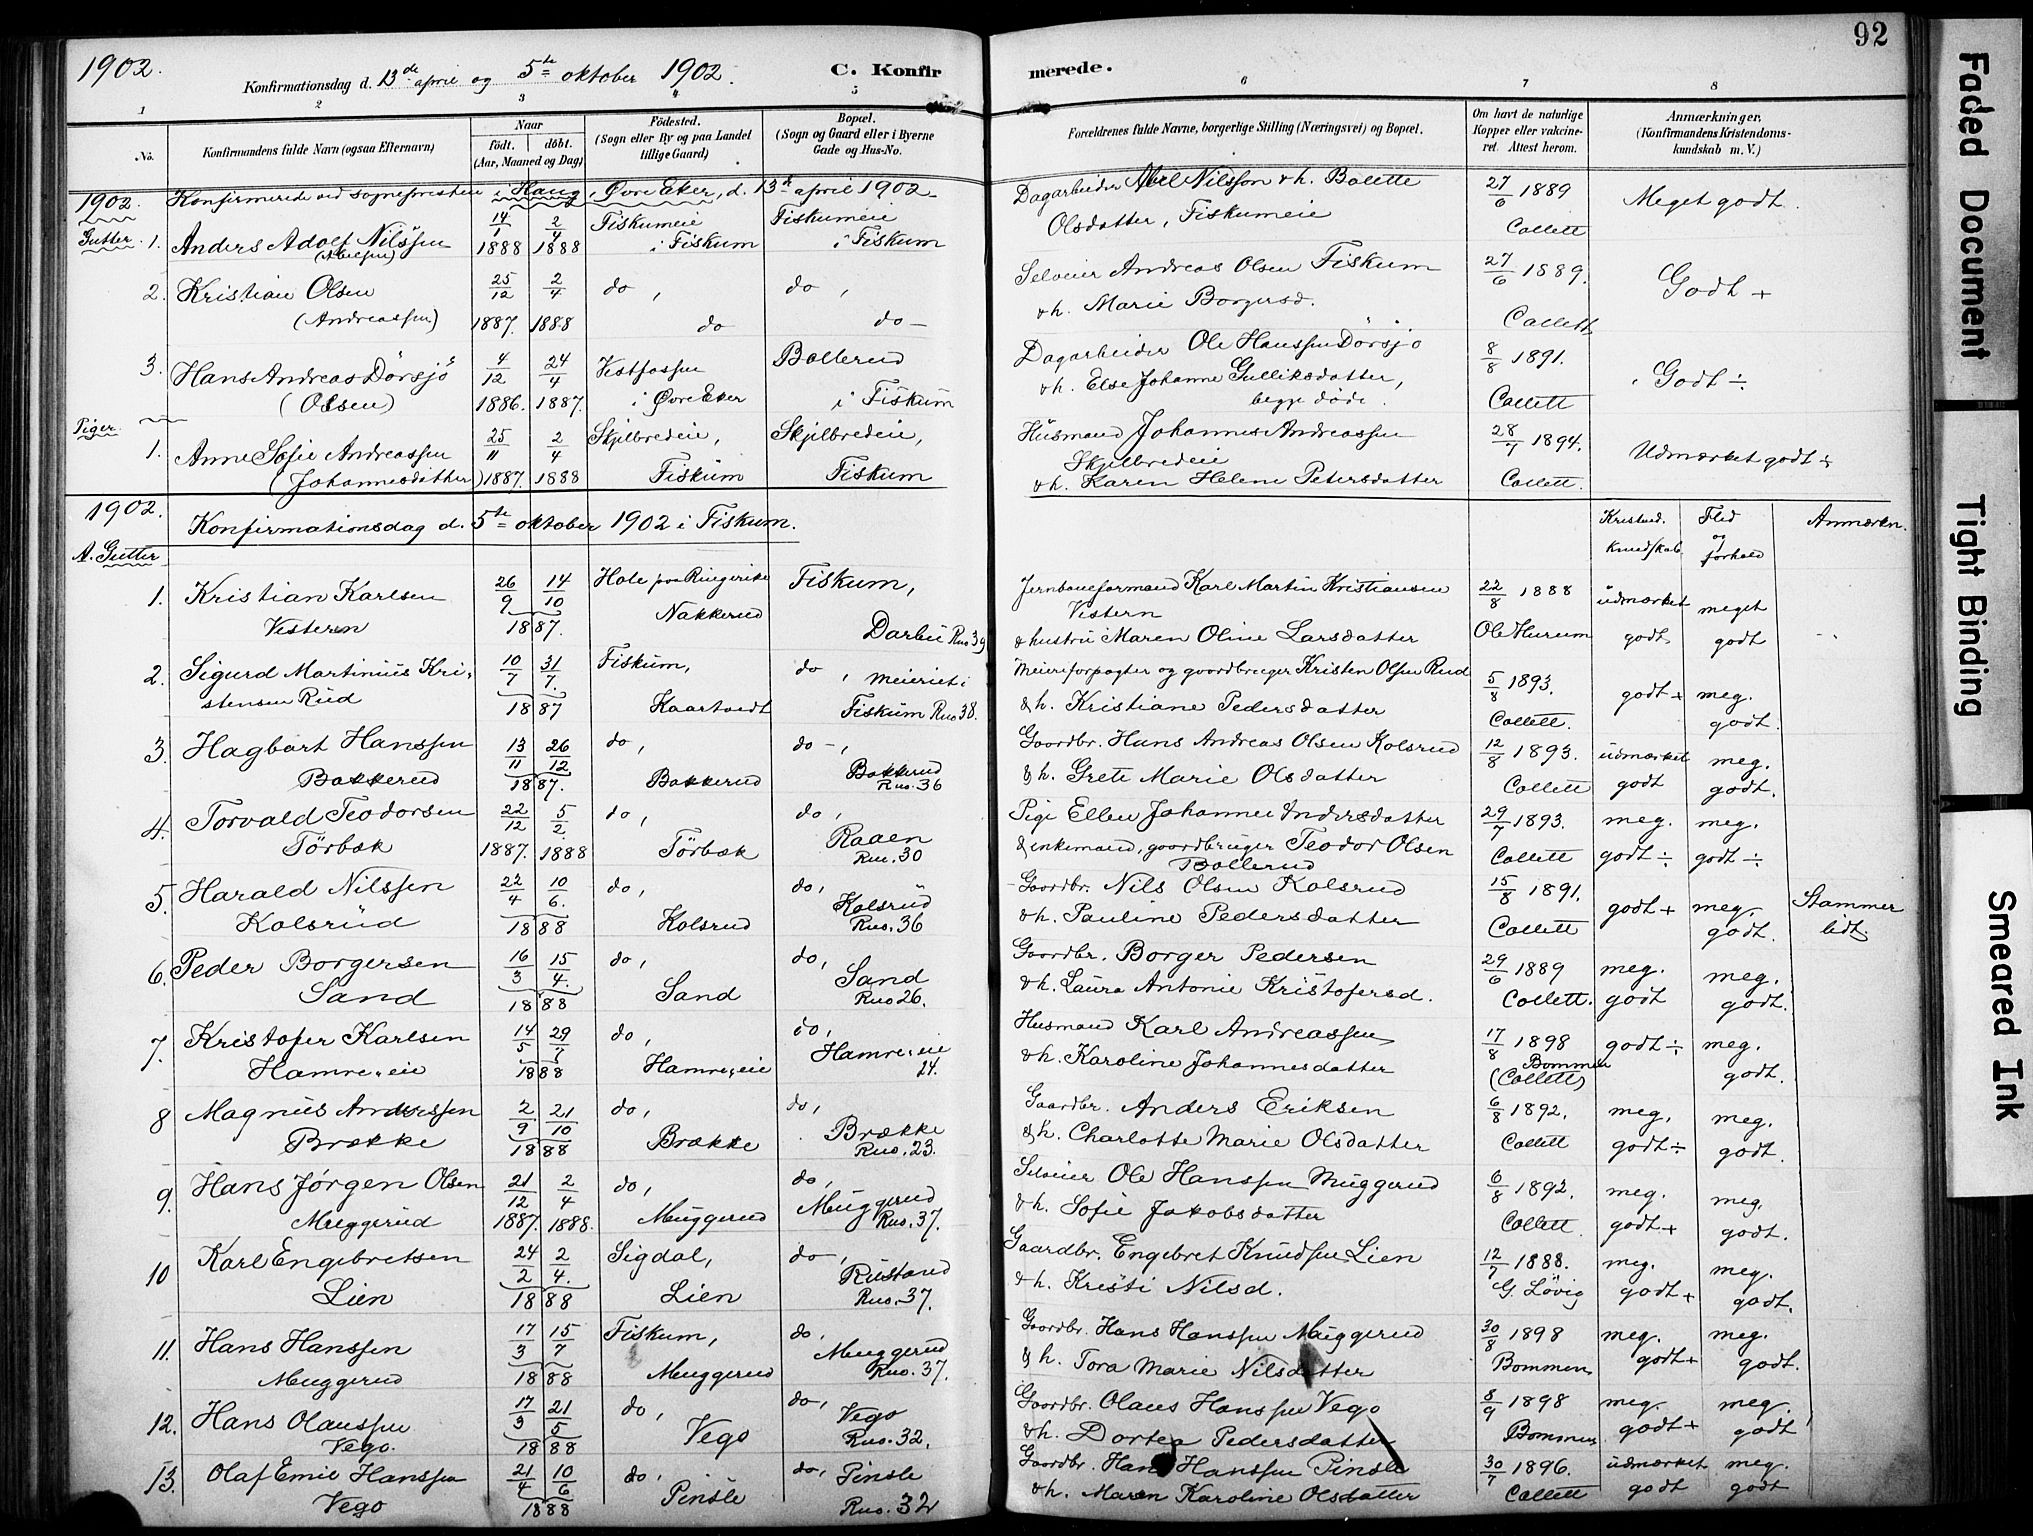 1902.
Konfirmationsdag d. 13de april og 5te oktober 1902.
C. Konfir
merede.
92
1 2 3 4 5 6 7 8
No.
Konfirmandens fulde Navn (ogsaa Efternavn)
Naar
født. døbt.
(Aar, Maaned og Dag)
Fødested.
(Sogn eller By og paa Landet
tillige Gaard)
Bopæl.
(Sogn og Gaard eller i Byerne
Gade og Hus-No.
Forældrenes fulde Navne, borgerlige Stilling (Næringsvei) og Bopæl.
Om havt de naturlige
Kopper eller vakcine-
ret. Attest herom.
Anmærkninger.
(Konfirmandens Kristendoms-
kundskab m. V.)
1902. Konfirmerede ved sognepresten i Haug, Øvre Eker, d. 13de april 1902
Gutter
1. Anders Adolf Nilssen 14/1 1888 2/4 1888 Fiskumeie i Fiskum Fiskumeie i Fiskum
Dagarbeider Abel Nilsson & h. Bolette
Olsdatter, Fiskumeie 27/6 1889 Collett Meget godt.
2. Kristian Olsen (Andreassen) 25/12 1887. 2/4 1888 do, do do, do
Selveier Andreas Olsen Fiskum
& h. Marie Borgersd. 27/6 1889. Collett Godt +
3. Hans Andreas Dørsjø (Olsen) 4/12 1886. 24/4 1887. Vestfossen i Øvre Eker Bollerud i Fiskum
Dagarbeider Ole Hanssen Dørsjø
& h. Else Johanne Gulliksdatter,
begge døde. 8/8 1891. Collett Godt ÷
Piger
1. Anne Sofie Andreassen (Johannesdatter) 25/11 1887. 2/4 1888 Skjelbredeie, Fiskum Skjelbredeie, Fiskum
Husmand Johannes Andreassen
Skjelbredeie
& h. Karen Helene Petersdatter 28/7 1894. Collett. Udmærket godt ÷
1902.
Konfirmationsdag d. 5te oktober 1902 i Fiskum.
Kristend. Kundskab Flid og forhold Anmærkn.
A. Gutter
1. Kristian Karlsen Vestern 26/9 14/10 1887. Hole paa Ringerike Nakkerud Fiskum, Darbu Rus 39
Jernbaneformand Karl Martin Kristiansen
Vestern
& hustru Maren Oline Larsdatter 22/8 1888 Ole Hurum udmærket godt meget godt
2. Sigurd Martinius Kristensen Rud 10/7 31/7. 1887 Fiskum, Kaartvedt do, meieriet i Fiskum Rus 38.
Meieriforpagter og gaardbruger Kristen Olsen Rud
& h. Kristiane Pedersdatter 5/8 1893. Collett. godt + meg. godt.
3. Hagbart Hanssen Bakkerud 13/11 26/12 1887. do, Bakkerud do -, Bakkerud Rus. 36
Gaardbr. Hans Andreas Olsen Kolsrud
& h. Grete Marie Olsdatter 12/8 1893. Collett udmærket godt meg. godt.
4. Torvald Teodorsen Tørbæk 22/12 1887. 5/2. 1888 do, Tørbæk do, Raaen Rus. 30
Pige Ellen Johanne Andersdatter
& enkemand, gaardbruger Teodor Olsen
Bollerud 29/7 1893. Collett meg. godt ÷ meg. godt ÷
5. Harald Nilssen Kolsrud 22/4 10/6. 1888 do, Kolsrud do, Kolsrud Rus. 36
Gaardbr. Nils Olsen Kolsrud
& h. Pauline Pedersdatter 15/8 1891. Collett godt + meg. godt. Stammer lidt.
6. Peder Borgersen Sand 16/3 15/4. 1888 do, Sand do, Sand Rus 26.
Gaardbr. Borger Pedersen
& h. Laura Antonie Kristofersd. 29/6 1889 Collett. meg. godt meg. godt.
7. Kristofer Karlsen Hamre-eie 14/5 29/7 1888 do, Hamre-eie do, Hamre-eie 24.
Husmand Karl Andreassen
& h. Karoline Johannesdatter 17/8 1898 Bommen (Collett) godt ÷ meg. godt.
8 Magnus Anderssen Brække 2/9 21/10 1888 do, Brække do, Brække Rus. 23.
Gaardbr. Anders Eriksen
& h. Charlotte Marie Olsdatter 6/8 1892. Collett meg. godt ÷ meg. godt.
9. Hans Jørgen Olsen Muggerud 21/12 1887. 2/4 1888. do, Muggerud do, Muggerud Rus. 37.
Selveier Ole Hanssen Muggerud
& h. Sofie Jakobsdatter 6/8 1892. Collett meg. godt + meg. godt.
10 Karl Engebretsen Lien 24/2 2/4. 1888 Sigdal, Lien do -, Rustand Rus. 37.
Gaardbr. Engebret Knudsen Lien
& h. Kristi Nilsd. 12/7 1888. G. Løvig meg. godt + meg. godt.
11. Hans Hanssen Muggerud 17/3 15/7 1888 Fiskum, Muggerud do, Muggerud Rus. 37.
Gaardbr. Hans Hanssen Muggerud
& h. Tora Marie Nilsdatter 30/8 1898 Bommen meg. godt + meg. godt.
12. Hans Olaussen Vego. 17/3 21/5 1888 do, Vego do -, Vego Rus. 32.
Gaardbr. Olaus Hanssen Vego
& h. Dortea Pedersdatter 8/9 1898 Bommen meg. godt + meg. godt
13. Olaf Emil Hanssen Vego 21/4 10/6 1888 do, Pinsle do, Pinsle Rus. 32
Gaardbr. Hans Hanssen Pinsle
& h. Maren Karoline Olsdatter 30/7 1896. Collett udmærket godt meg. godt
Faded Document
Tight Binding
Smeared Ink